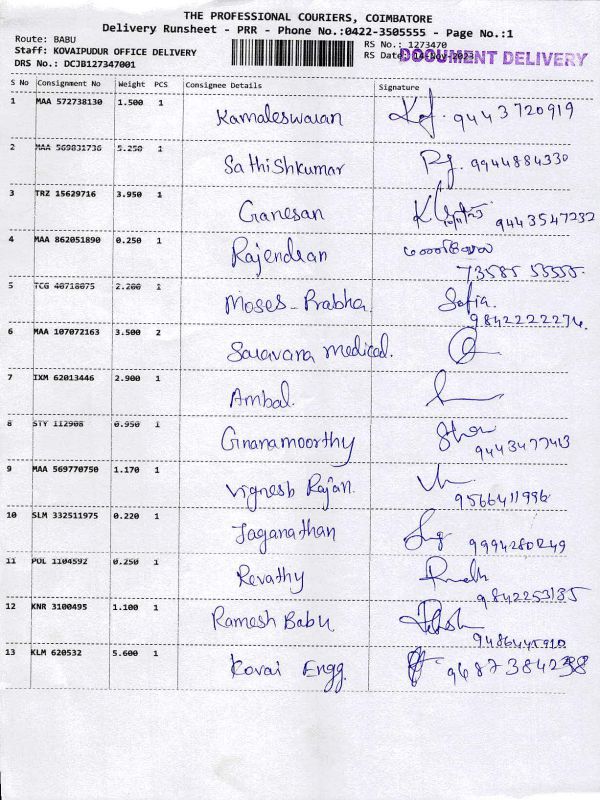 THE PROFESSIONAL COURIERS, COIMBATORE
Delivery Runsheet - PRR - Phone No.:0422-3505555 - Page No.:1
Route: BABU
Staff: KOVAIPUDUR OFFICE DELIVERY
DRS No.: DCJB127347001
RS No.: 1273470
RS Date: 14-Nov-2023
DOCUMENT DELIVERY
S No Consignment No Weight PCS Consignee Details Signature
1 MAA 572738130 1.500 1 Kamaleswaran 9443720919
2 MAA 569831736 5.250 1 Sathishkumar 9944884330
3 TRZ 15629716 3.950 1 Ganesan 9443547232
4 MAA 862051890 0.250 1 Rajendran
73585 55555
5 TCG 40718075 2.200 1 Moses Prabha. Sofia.
9842222274
6 MAA 107072163 3.500 2 Saravana medical.
7 IXM 62013446 2.900 1 Ambal.
8 STY 112908 0.950 1 Gnanamoorthy
9443477413
9 MAA 569770750 1.170 1 Vignesh Rajan.
9566411996
10 SLM 332511975 0.220 1 Jaganathan 9994280249
11 POL 1104592 0.250 1 Revathy
9842253185
12 KNR 3100495 1.100 1 Ramesh Babu
9486445910
13 KLM 620532 5.600 1 Kovai Engg.